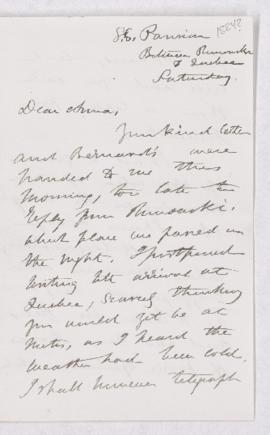 S.S. Parisian
1884?
Between Rimouski
& Quebec
Saturday.
Dear Anna,
Your kind letter
and Bernard's were
handed to me this
morning, too late to
reply from Rimouski,
which place we passed in
the night. I postponed
writing till arrival at
Quebec, scarcely thinking
you would yet be at
Metis, as I heard the
weather had been cold.
I shall however telegraph